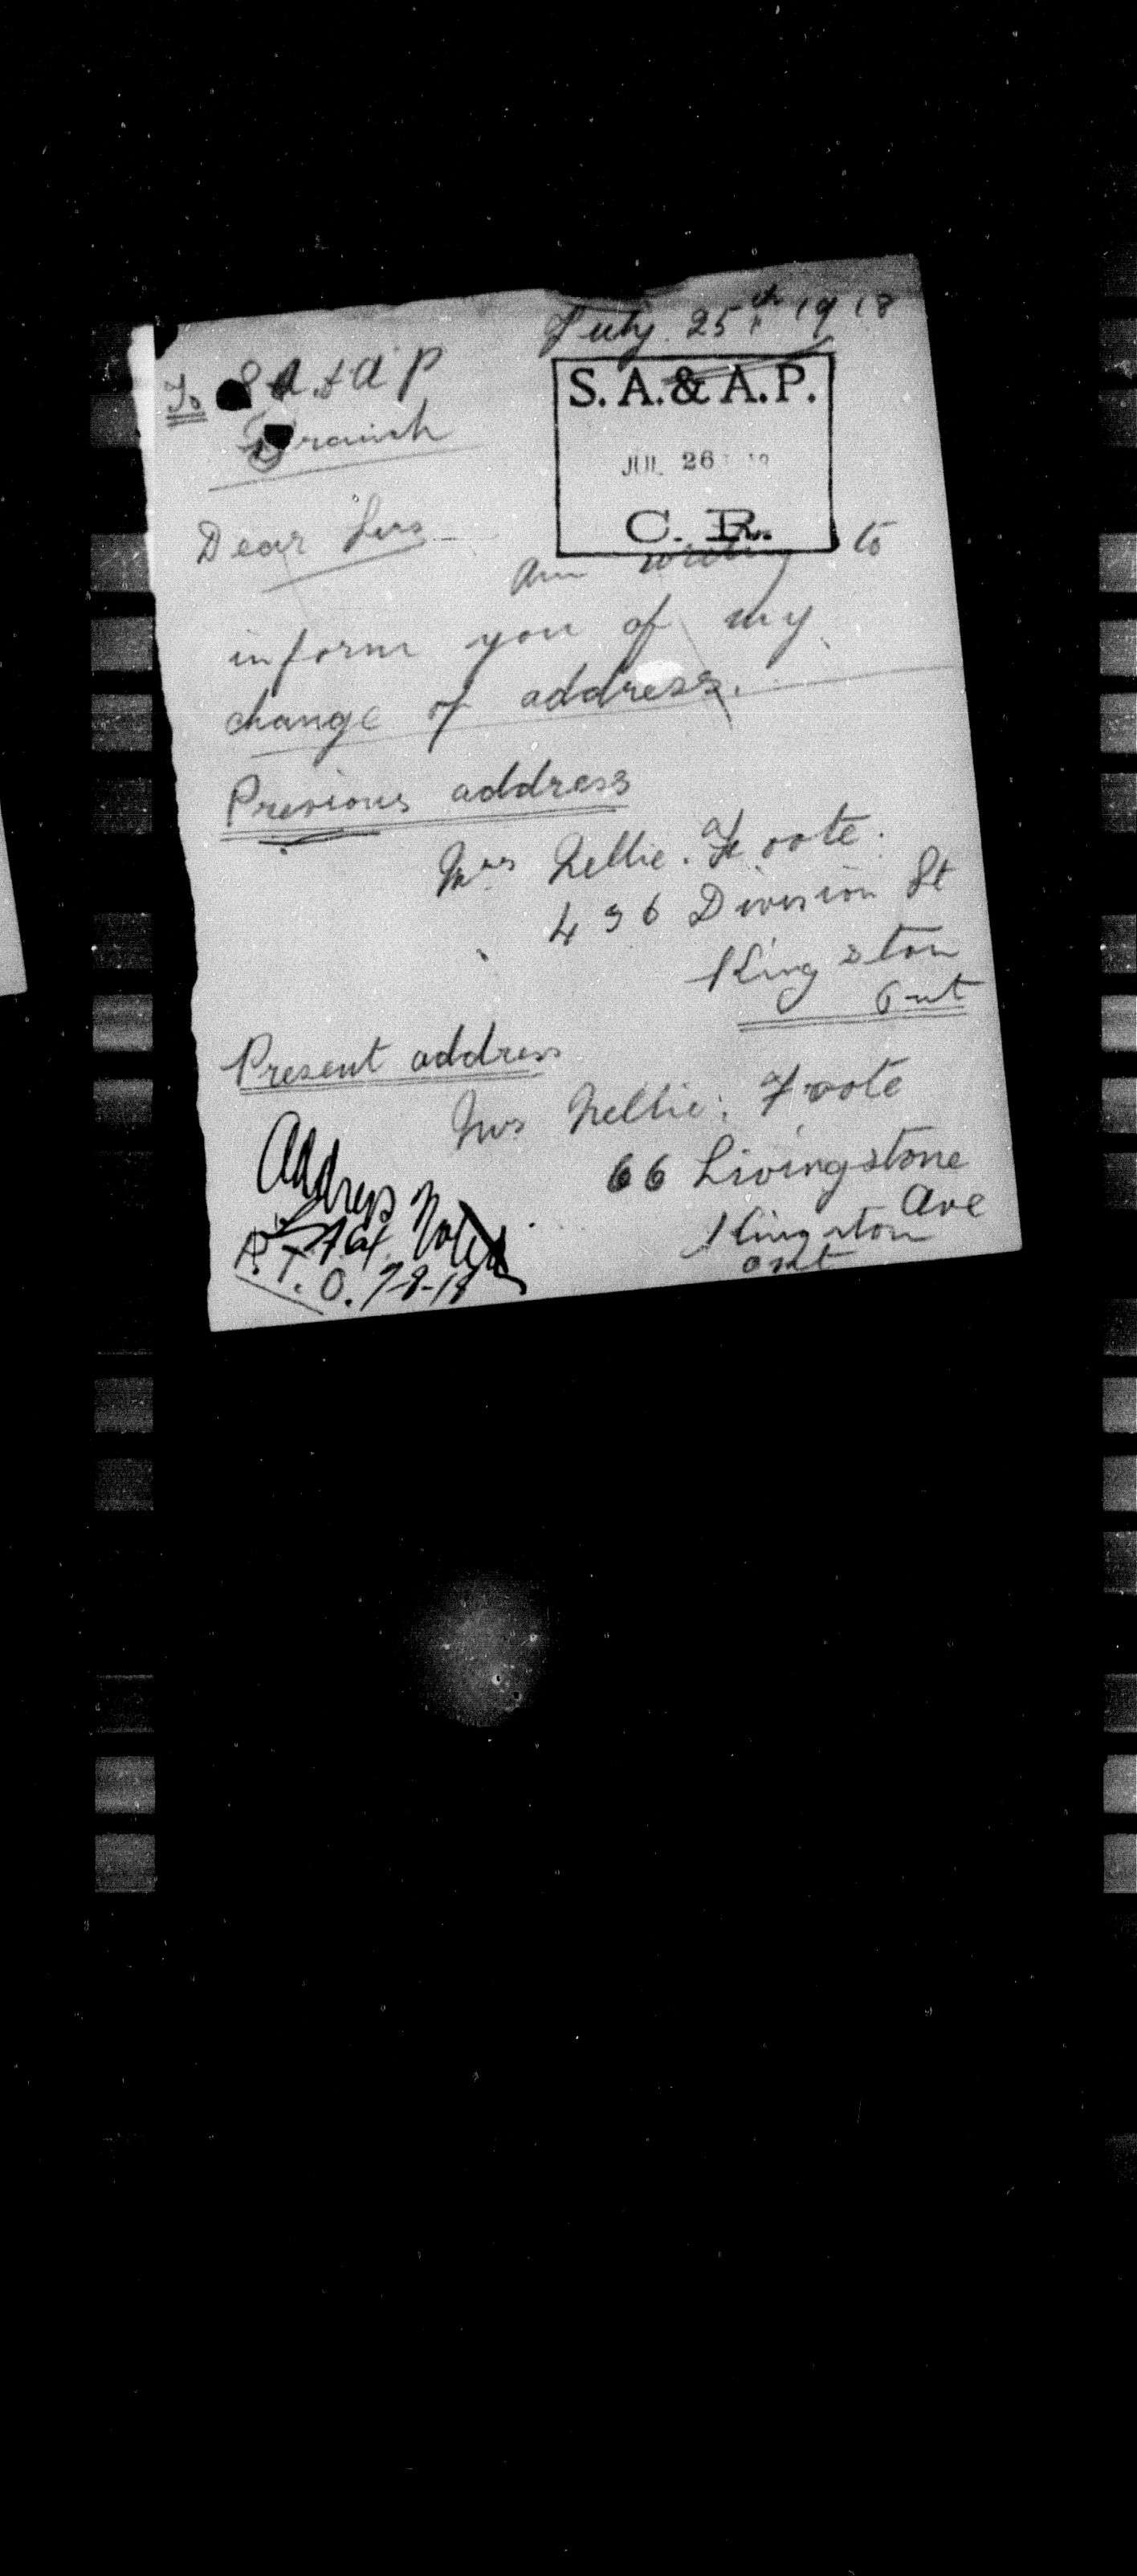 July. 25th 1918
To S A & A P
Branch
S. A. & A. P.
JUL 26
C. R.
Dear Sirs
Am writing to
inform you of my
change of address.
Previous address
Mrs Nellie. Foote.
436 Division St
Kingston
Ont
Present address
Mrs Nellie. Foote
66 Livingstone
Ave
Kingston
ont
Address Noted
P. T. O. 7-8-18